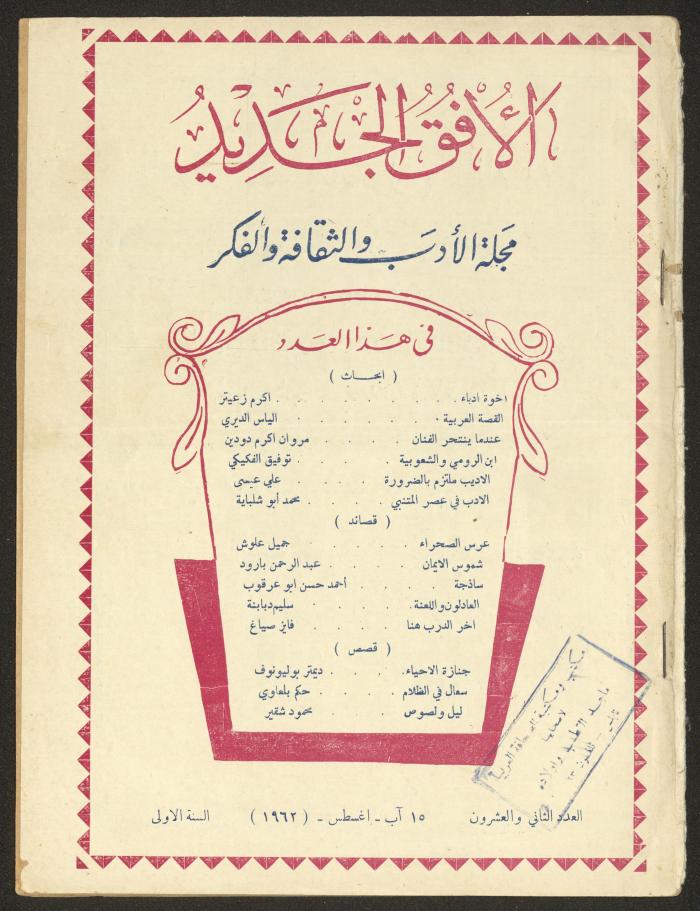 الأفق الجديد
مجلة الأدب والثقافة والفكر
في هذا العدد
( ابحاث )
اخوة ادباء . . . . . . . . . اكرم زعيتر
القصة العربية . . . . . . . الياس الديري
عندما ينتحر الفنان . . . . مروان اكرم دودين
ابن الرومي والشعوبية . . . . . توفيق الفكيكي
الاديب ملتزم بالضرورة . . . . . علي عيسى
الادب في عصر المتنبي . . . . محمد أبو شلباية
( قصائد )
عرس الصحراء . . . . . . جميل علوش
شموس الايمان . . . . . عبد الرحمن بارود
ساذجة . . . . . احمد حسن ابو عرقوب
العادلون واللعنة . . . . . . سليم دبابنة
اخر الدرب هنا . . . . . . فايز صياغ
( قصص )
جنازة الاحياء . . . . ديمتر بوليونوف
سعال في الظلام . . . . . حكم بلعاوي
ليل ولصوص . . . . . محمود شقير
العدد الثاني والعشرون ١٥ آب - اغسطس - ( ١٩٦٢ ) السنة الاولى
ومكتبة الصحافة العربية
لاصحابها
واولاده